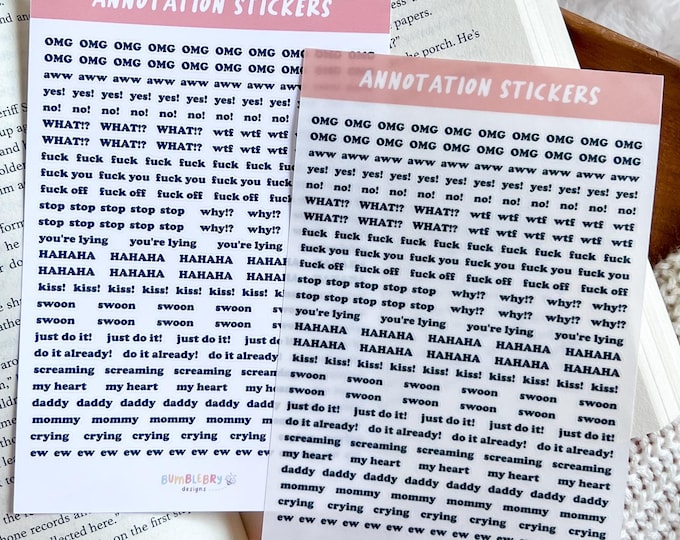 ANNOTATION STICKERS
OMG OMG OMG OMG OMG OMG OMG OMG OMG OMG
OMG OMG OMG OMG OMG OMG OMG OMG
aww aww aww aww aww aww aww aww
yes! yes! yes! yes! yes! yes! yes! yes!
no! no! no! no! no! no! no!
WHAT!? WHAT!? WHAT!? wtf wtf wtf
WHAT!? WHAT!? WHAT!? wtf wtf wtf
fuck fuck fuck fuck fuck fuck fuck
fuck you fuck you fuck you fuck you
fuck off fuck off fuck off fuck off
stop stop stop stop stop why!? why!?
stop stop stop stop stop why!? why!?
you're lying you're lying you're lying
HAHAHA HAHAHA HAHAHA HAHAHA
HAHAHA HAHAHA HAHAHA HAHAHA
kiss! kiss! kiss! kiss! kiss! kiss! kiss!
swoon swoon swoon swoon
swoon swoon swoon swoon
just do it! just do it! just do it!
do it already! do it already! do it already!
screaming screaming screaming screaming
my heart my heart my heart my heart
daddy daddy daddy daddy daddy daddy
mommy mommy mommy mommy
crying crying crying crying crying
ew ew ew ew ew ew ew ew ew ew
BUMBLEBRY
designs
ANNOTATION STICKERS
OMG OMG OMG OMG OMG OMG OMG OMG OMG OMG
OMG OMG OMG OMG OMG OMG OMG OMG OMG OMG
aww aww aww aww aww aww aww aww aww aww
yes! yes! yes! yes! yes! yes! yes! yes! yes! yes! yes! yes!
no! no! no! no! no! no! no! no! no! no! no!
WHAT!? WHAT!? WHAT!? wtf wtf wtf wtf wtf wtf
WHAT!? WHAT!? WHAT!? wtf wtf wtf wtf wtf wtf
fuck fuck fuck fuck fuck fuck fuck fuck fuck
fuck you fuck you fuck you fuck you fuck you fuck you
fuck off fuck off fuck off fuck off fuck off fuck off
stop stop stop stop stop why!? why!? why!? why!?
stop stop stop stop stop why!? why!? why!? why!?
you're lying you're lying you're lying you're lying
HAHAHA HAHAHA HAHAHA HAHAHA HAHAHA
HAHAHA HAHAHA HAHAHA HAHAHA HAHAHA
kiss! kiss! kiss! kiss! kiss! kiss! kiss! kiss! kiss!
swoon swoon swoon swoon swoon
swoon swoon swoon swoon swoon
just do it! just do it! just do it! just do it! just do it!
do it already! do it already! do it already! do it already!
screaming screaming screaming screaming screaming
my heart my heart my heart my heart my heart
daddy daddy daddy daddy daddy daddy daddy daddy
mommy mommy mommy mommy mommy mommy
crying crying crying crying crying crying crying
ew ew ew ew ew ew ew ew ew ew ew ew ew
papers.
the porch. He's